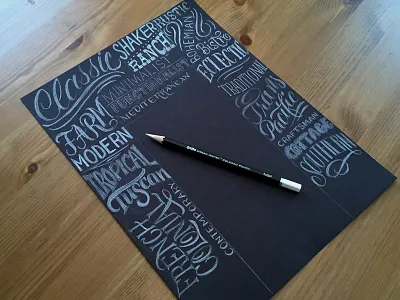 Classic
SHAKER
RUSTIC
RANCH
MINIMALIST
FUNCTIONALIST
MEDITERRANEAN
FARM
MODERN
TROPICAL
Tuscan
FRENCH
COLONIAL
CONTEMPORARY
BOHEMIAN
Bistro
ECLECTIC
TRADITIONAL
CRAFTSMAN
COTTAGE
SOUTHERN